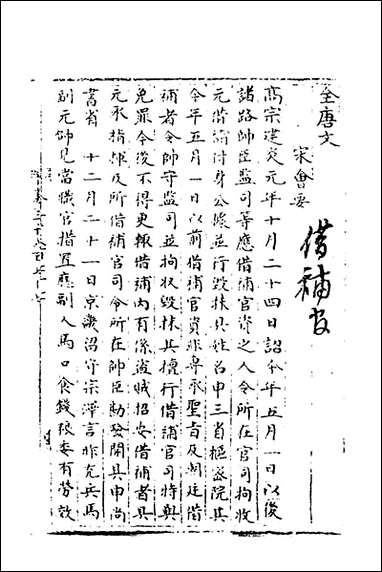 全唐文
宋會要
借補官
高宗建炎元年十月二十四日詔今年五月一日以後
諸路帥臣監司等應借補官資之人令所在官司拘收
元借補付身公據並行毀抹具姓名申三省樞密院其
今年五月一日以前借補官資非專承聖旨及朝廷借
補者令帥守監司並拘收毀抹其擅行借補官司特與
免罪今後不得更輒借補內有係盜賊招安借補者具
元承指揮及所借補官司令所在帥臣勘發開具申尚
書省 十二月二十一日京畿留守宗澤言昨充兵馬
副元帥見當職官措置應副人馬口食錢粮委有勞效